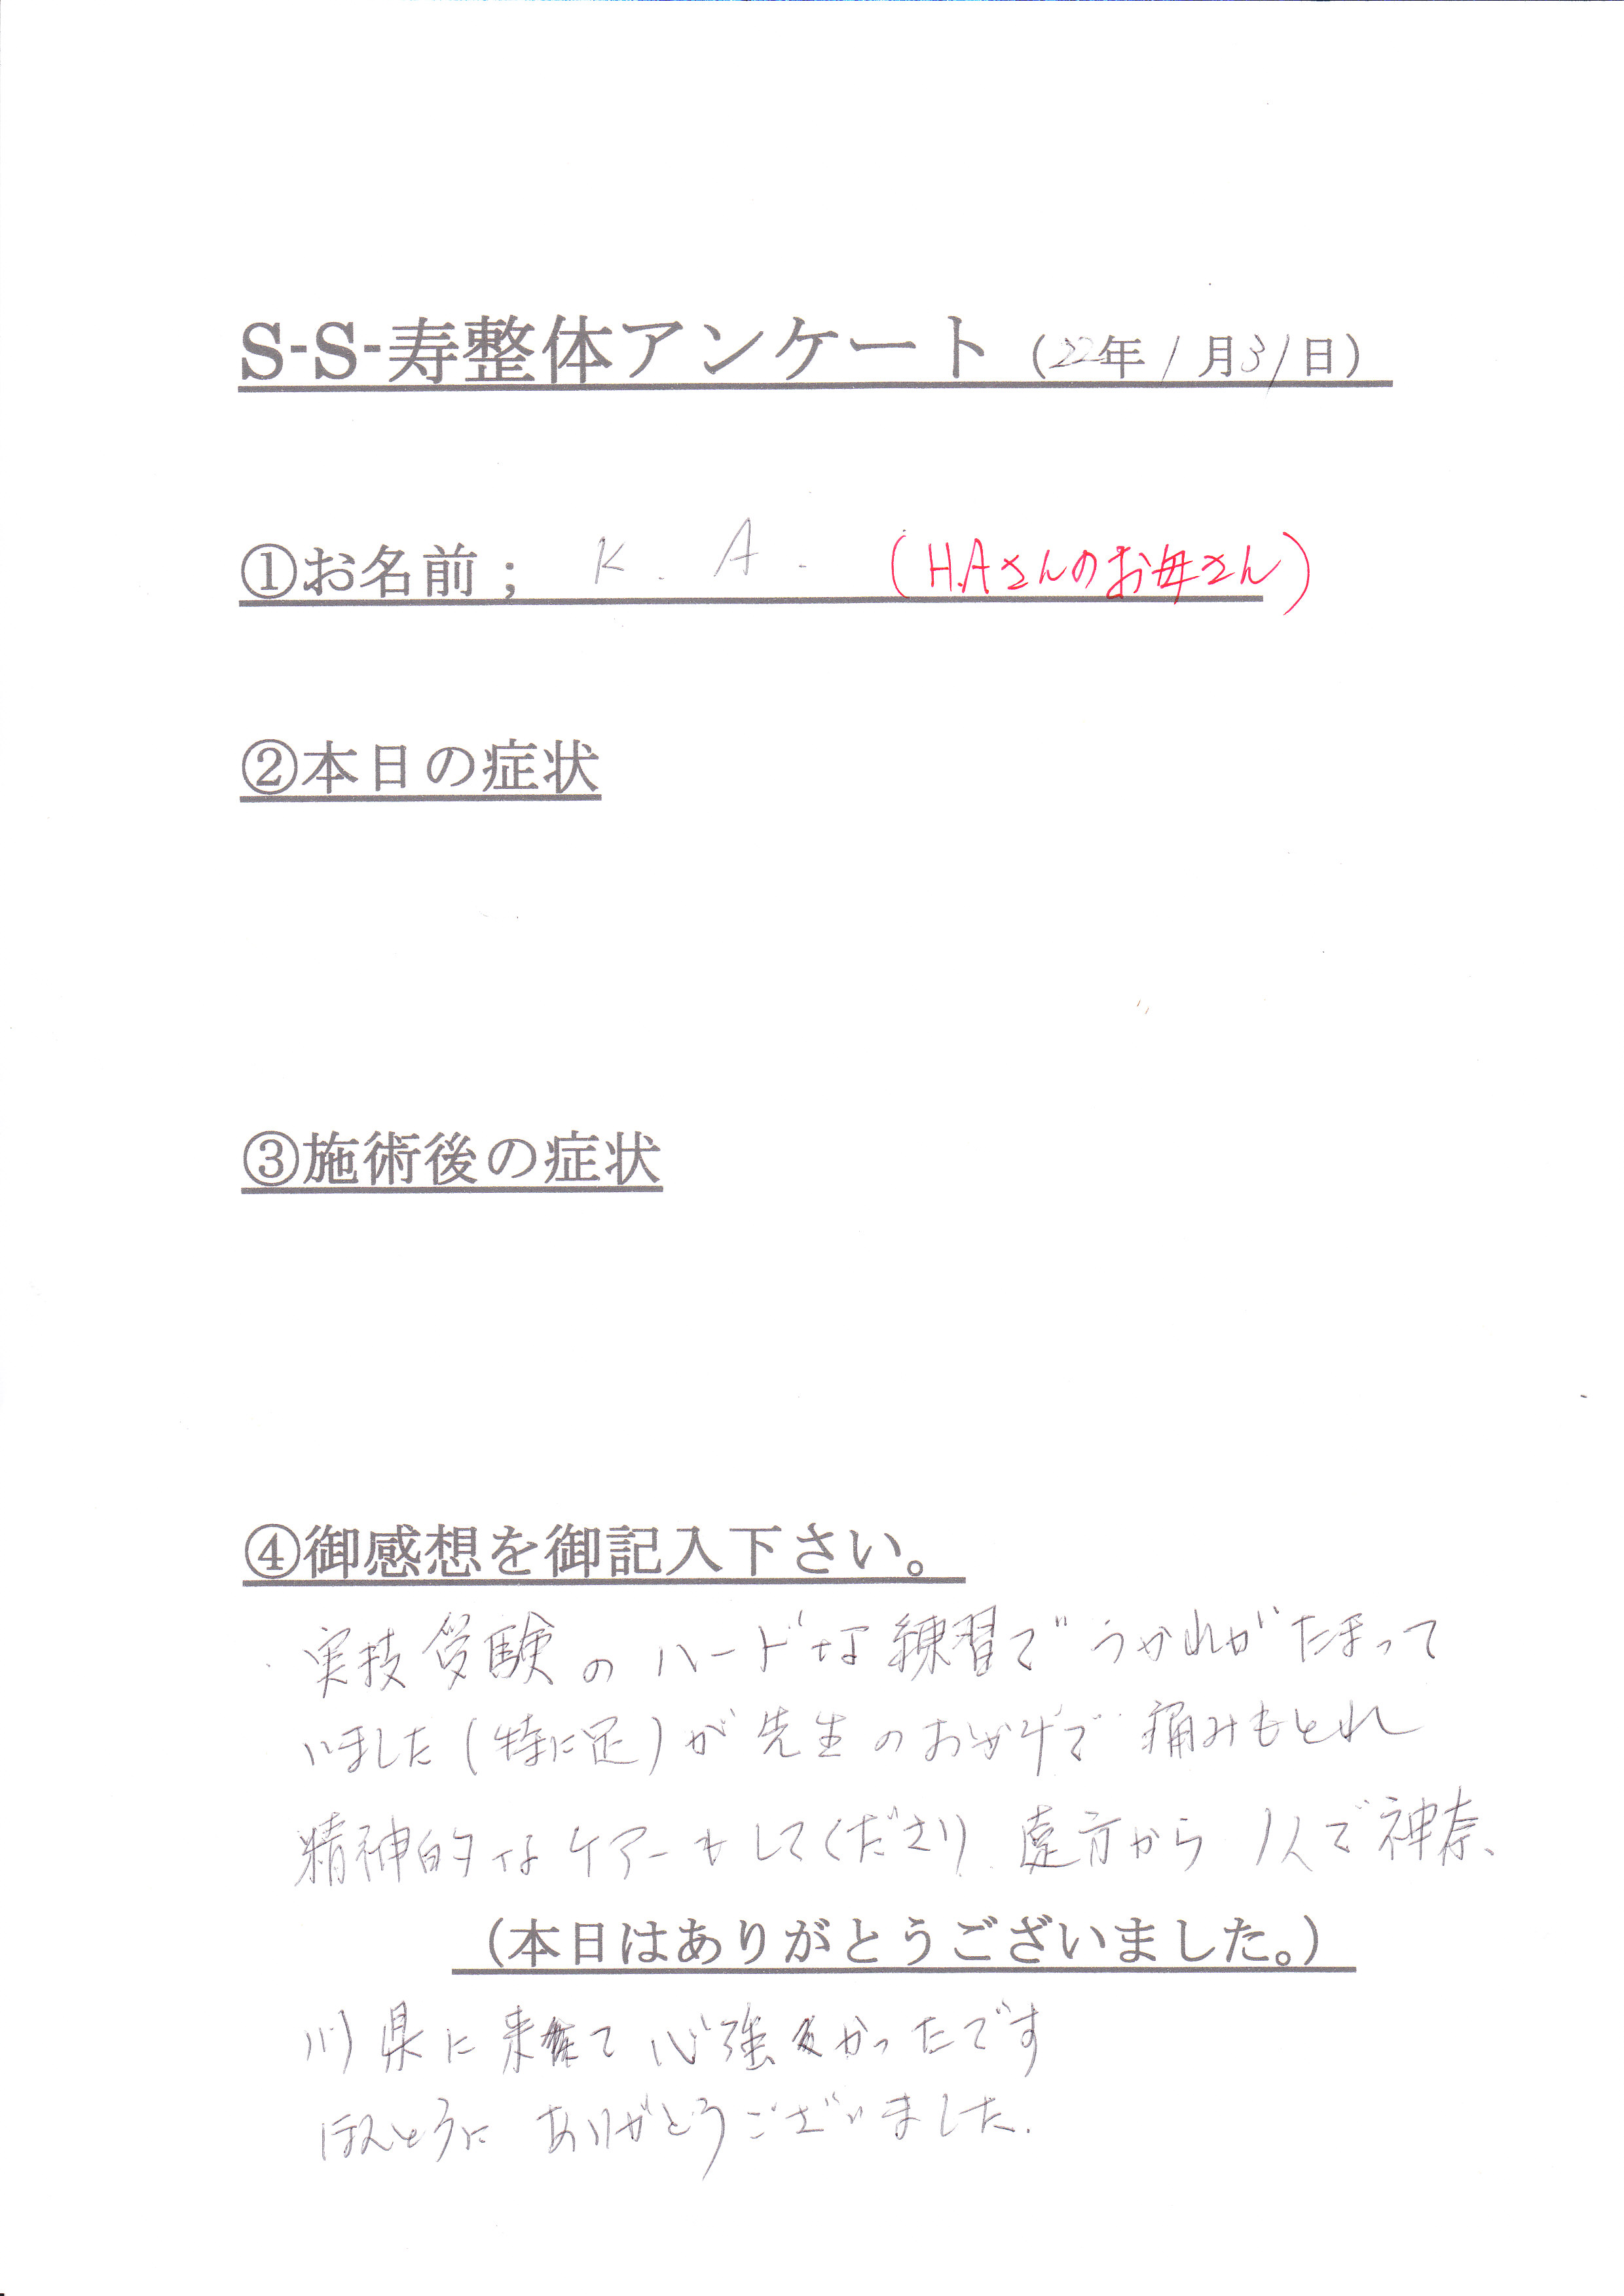 S-S-寿整体アンケート（22年1月31日）
①お名前； K. A. (H.Aさんのお母さん)
②本日の症状
③施術後の症状
④御感想を御記入下さい。
実技受験のハードな練習でつかれがたまって
いました(特に足)が先生のおかげで痛みもとれ
精神的なケアーもしてくださり、遠方から1人で神奈、
（本日はありがとうございました。）
川県に来て心強かったです
ほんとうにありがとうございました.